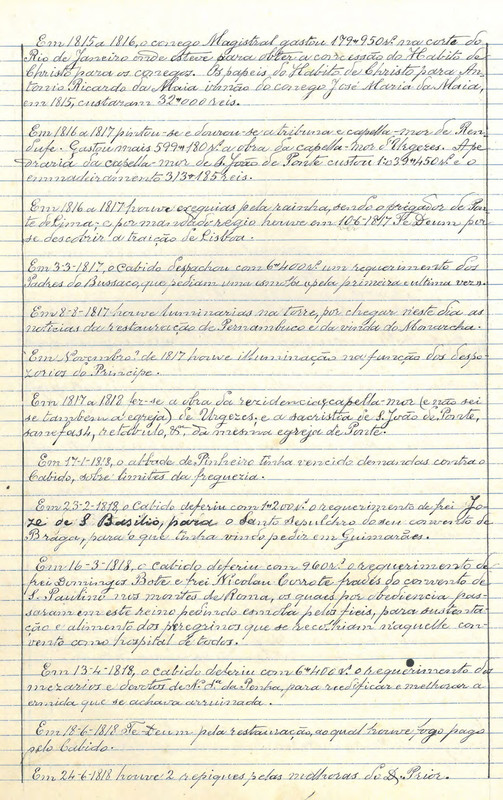 Em 1815 a 1816, o conego Magistral gastou 179#950rs. na corte do
Rio de Janeiro onde esteve para obter a concessão do Habito de
Christo para os conegos. Os papeis do Habito de Christo para An-
tonio Ricardo da Maia irmão do conego José Maria da Maia,
em 1815, custaram 32#000 reis.
Em 1816 a 1817 pintou-se e dourou-se a tribuna e capella-mor de Ren-
dufe. Gastou mais 599#180rs. a obra da capella-mor d'Urgezes. A pe-
draria da capella-mor de S. João de Ponte custou 1:039#450rs. e o
emmadeiramento 313#185 reis.
Em 1816 a 1817 houve exequias pela rainha, sendo o prégador de Pon-
te de Lima; e por mandado regio houve em 10-6-1817 Te-Deum por
se descobrir a traição de Lisboa.
Em 3-3-1817, o Cabido despachou com 6#400rs. um requerimento dos
Padres do Bussaco, que pediam uma esmola pela primeira e ultima vez.
Em 8-8-1817 houve luminarias na torre, por chegar neste dia as
noticias da restauração de Pernambuco e da vinda do Monarcha.
Em Novembro de 1817 houve illuminação na função dos despo-
zorios do Principe.
Em 1817 a 1818 fez-se a obra da rezidencia e capella-mor (e não sei
se tambem d'egreja) de Urgezes, e a sacristia de S. João de Ponte,
sanefas, retabulo, &, da mesma egreja de Ponte.
Em 17-1-1818, o abbade de Pinheiro tinha vencido demandas contra o
Cabido, sobre limites da freguezia.
Em 23-2-1818, o Cabido deferiu com 1#200rs. o requerimento de frei Jo-
zé de S. Basilio, para o Santo Sepulchro do seu convento de
Braga, para o que tinha vindo pedir em Guimarães.
Em 16-3-1818, o Cabido deferiu com 960rs. o requerimento de
frei Domingos Bote e frei Nicolau Corrote frades do convento de
S. Paulino nos montes de Roma, os quaes por obediencia pas-
saram em este reino pedindo esmola pelos fieis, para sustenta-
ção e alimento dos peregrinos que se recolhiam naquelle con-
vento como hospital de todos.
Em 13-4-1818, o cabido deferiu com 6#400rs. o requerimento dos
mezarios e devotos de N. Sra. da Penha, para reedificar e melhorar a
ermida que se achava arruinada.
Em 18-6-1818 Te-Deum pela restauração, ao qual houve fogo pago
pelo Cabido.
Em 24-6-1818 houve 2 repiques pelas melhoras do D. Prior.